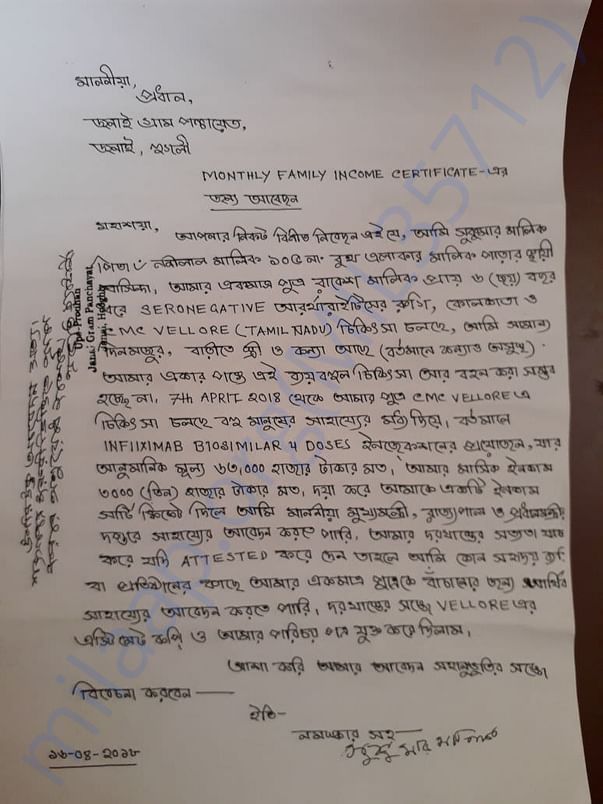 মাননীয়া,
প্রধান,
জনাই গ্রাম পঞ্চায়েত,
জনাই, হুগলী
MONTHLY FAMILY INCOME CERTIFICATE-এর
জন্য আবেদন
মহাশয়া,
আপনার নিকট বিনীত নিবেদন এই যে, আমি সুকুমার মালিক
পিতা ননীলাল মালিক ১০৫ নং বুথ এলাকার মালিক পাড়ার স্থায়ী
বাসিন্দা, আমার একমাত্র পুত্র রাকেশ মালিক প্রায় ৬ (ছয়) বছর
ধরে SERONEGATIVE আরথ্যারাইটিসের রুগি, কোলকাতা ও
CMC VELLORE (TAMIL NADU) চিকিৎসা চলছে, আমি সামান্য
দিনমজুর, বাড়ীতে স্ত্রী ও কন্যা আছে (বর্তমানে কন্যাও অসুস্থ).
আমার একার পক্ষে এই ব্যয় বহুল চিকিৎসা আর বহন করা সম্ভব
হচ্ছে না, 7th APRIL 2018 থেকে আমার পুত্র CMC VELLORE এ
চিকিৎসা চলছে বহু মানুষের সাহায্যের মধ্য দিয়ে, বর্তমানে
INFIIXIMAB BIOSIMILAR 4 DOSES ইনজেকশনের প্রয়োজন, যার
আনুমানিক মূল্য ৬৩,০০০ হাজার টাকার মত, আমার মাসিক ইনকাম
৩০০০ (তিন) হাজার টাকার মত, দয়া করে আমাকে একটি ইনকাম
সার্টিফিকেট দিলে আমি মাননীয়া মুখ্যমন্ত্রী, রাজ্যপাল ও প্রধানমন্ত্রীর
দপ্তরে সাহায্যের আবেদন করতে পারি, আমার দরখাস্তের সত্যতা যাচাই
করে যদি ATTESTED করে দেন তাহলে আমি কোন সহৃদয় ব্যক্তি
বা প্রতিষ্ঠানের কাছে আমার একমাত্র পুত্রকে বাঁচানোর জন্য আর্থিক
সাহায্যের আবেদন করতে পারি, দরখাস্তের সঙ্গে VELLORE এর
এস্টিমেট কপি ও আমার পরিচয় পত্র যুক্ত করে দিলাম,
আশা করি আমার আবেদন সহানুভূতির সঙ্গে
বিবেচনা করবেন —
ইতি-
নমস্কার সহ
সুকুমার মালিক
১৬-০৪-২০১৮
Upa-Prodhan
Janai Gram Panchayat
Janai, Hooghly
milaap.org
35712)